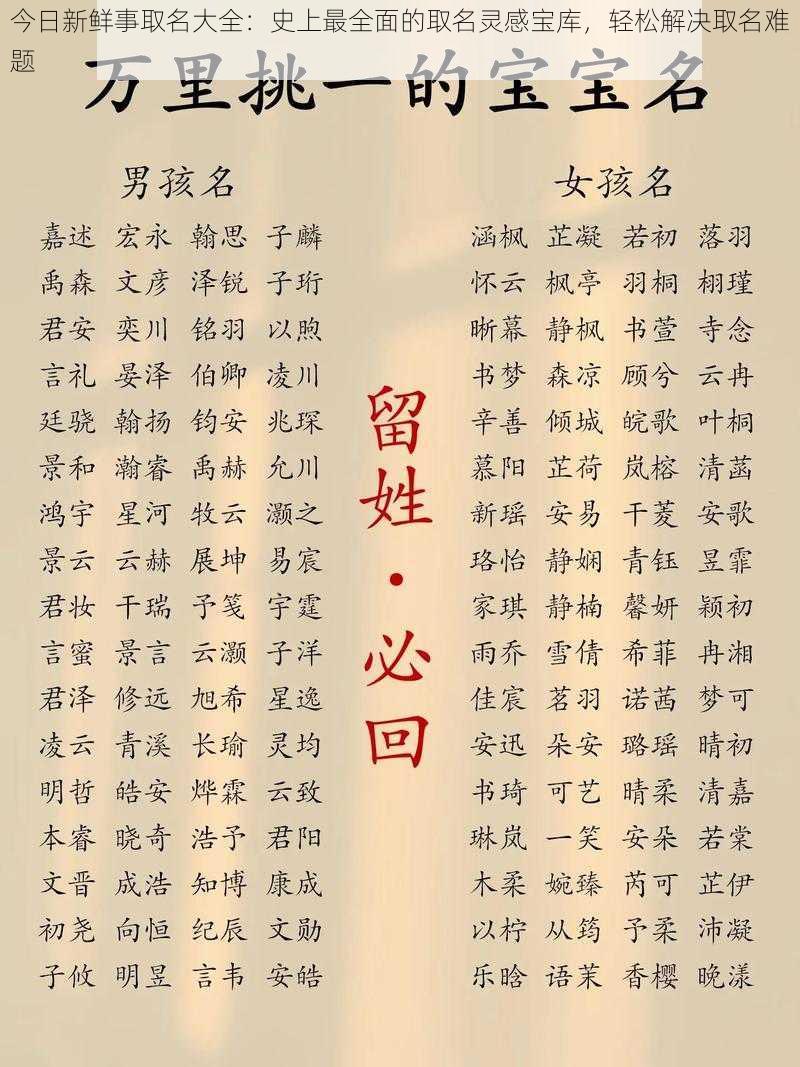 今日新鲜事取名大全：史上最全面的取名灵感宝库，轻松解决取名难
题
万里挑一的宝宝名
男孩名
嘉述 宏永 翰思 子麟
禹森 文彦 泽锐 子珩
君安 奕川 铭羽 以煦
言礼 晏泽 伯卿 凌川
廷骁 翰扬 钧安 兆琛
景和 瀚睿 禹赫 允川
鸿宇 星河 牧云 灏之
景云 云赫 展坤 易宸
君妆 干瑞 予笺 宇霆
言蜜 景言 云灏 子洋
君泽 修远 旭希 星逸
凌云 青溪 长瑜 灵均
明哲 皓安 烨霖 云致
本睿 晓奇 浩予 君阳
文晋 成浩 知博 康成
初尧 向恒 纪辰 文勋
子攸 明昱 言韦 安皓
留姓·必回
女孩名
涵枫 芷凝 若初 落羽
怀云 枫亭 羽桐 栩瑾
晰幕 静枫 书萱 寺念
书梦 森凉 顾兮 云冉
辛善 倾城 皖歌 叶桐
慕阳 芷荷 岚榕 清菡
新瑶 安易 干菱 安歌
珞怡 静娴 青钰 昱霏
家琪 静楠 馨妍 颖初
雨乔 雪倩 希菲 冉湘
佳宸 茗羽 诺茜 梦可
安迅 朵安 璐瑶 晴初
书琦 可艺 晴柔 清嘉
琳岚 一笑 安朵 若棠
木柔 婉臻 芮可 芷伊
以柠 从筠 予柔 沛凝
乐晗 语茉 香樱 晚漾